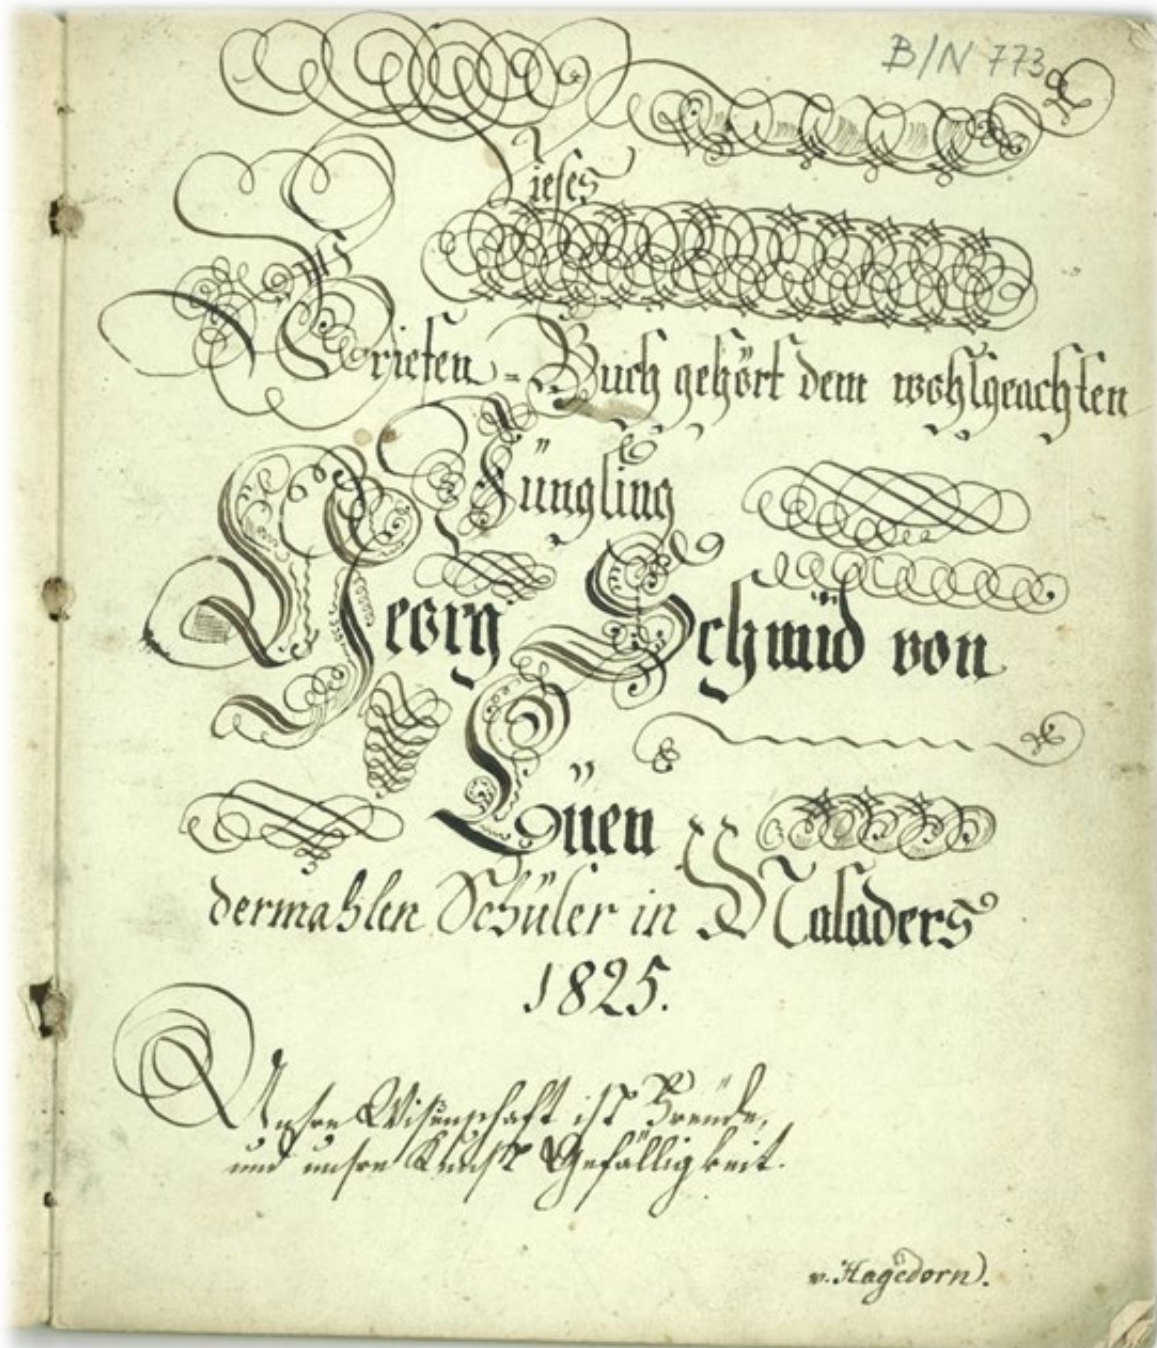 B/N 773
Dieses
Buch gehört dem wohlgeachten
Jüngling
Georg Schmid von
Lüen
dermahlen Schüler in Maladers
1825.
Unsre Wißenschaft ist Freude,
und unsre Kunst Gefälligkeit.
v. Hagedorn).